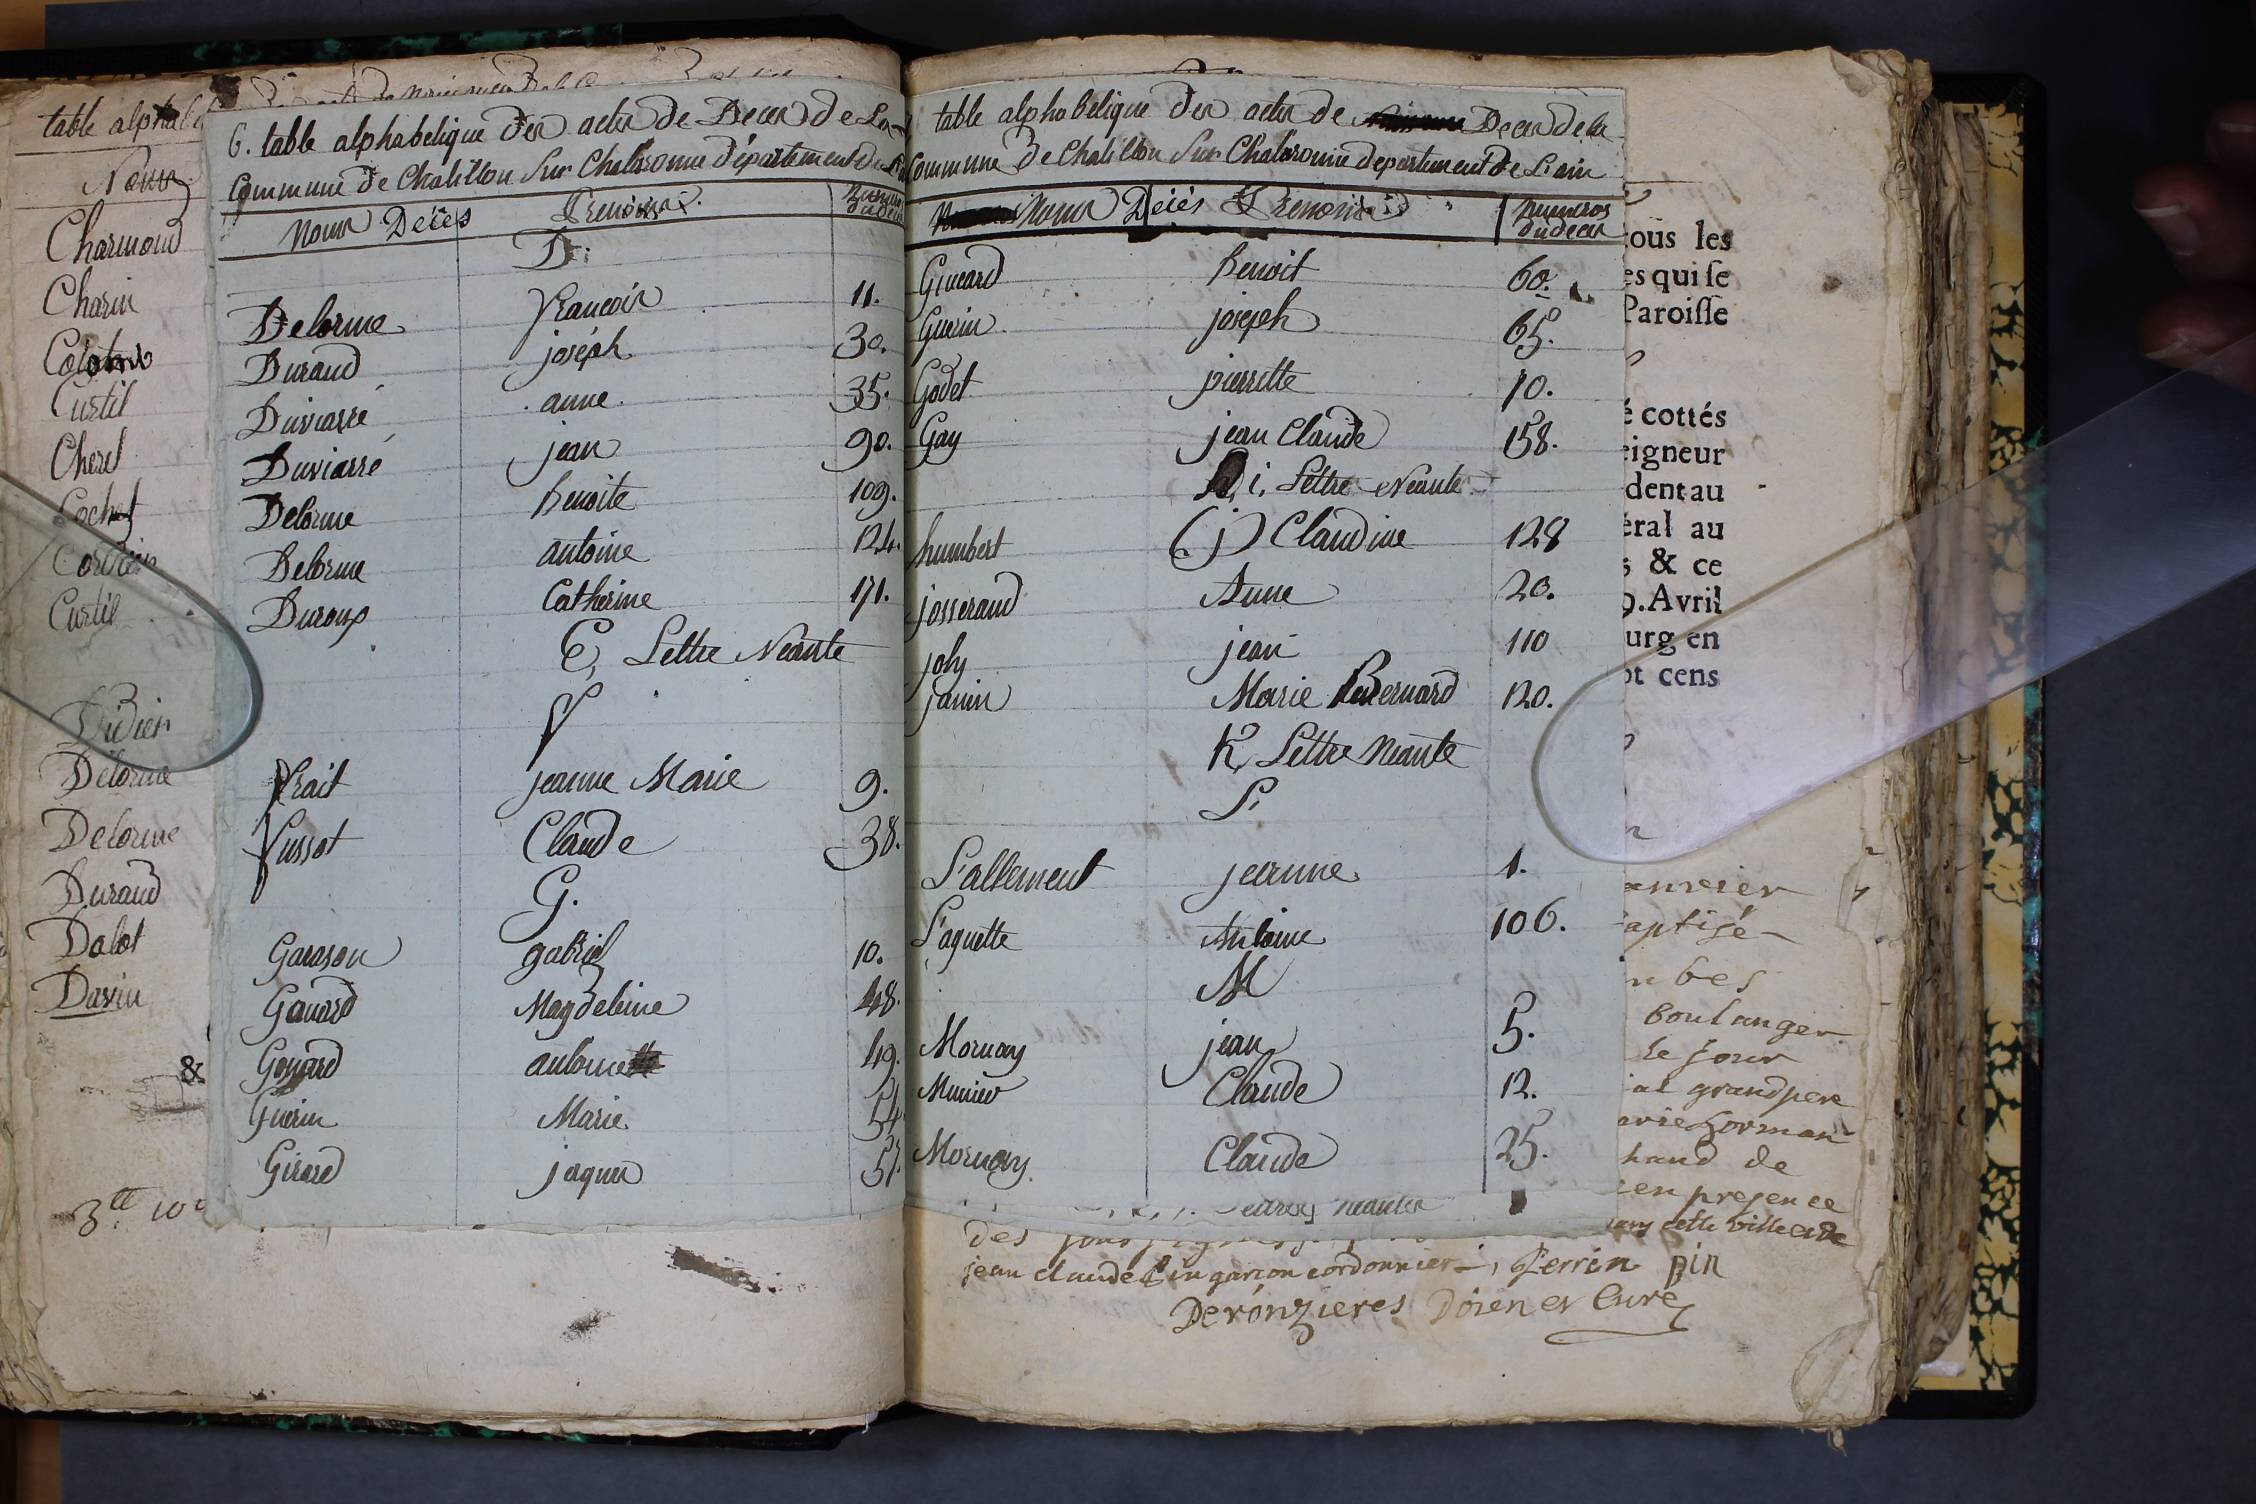 table alphab
Noms
Charmond
Charin
Curtil
Cherel
Cochet
Curtil
Didier
Delorme
Delorme
Durand
Dalot
Davin
&
6. table alphabetique des actes de Deces de La
Commune de Chatillon Sur Chalaronne département de L'ain
Noms Décès Prenoms Numeros du deces
D.
Delorme francois 11.
Durand joséph 30.
Duviarré anne 35.
Duviarré jean 90.
Delorme Benoite 109.
Delorme antoine 124.
Duroux Catherine 171.
E, Lettre Néante
f
frait jeanne Marie 9.
fussot Claude 38.
G.
Garason gabriel 10.
Gauard Magdeleine 48.
Gouard antoine 49.
Guerin Marie 54
Girard jaques 57.
table alphabetique des actes de Deces de la
Commune de Chatillon Sur Chalaronne departement de L'ain
Noms Décès Prenoms Numeros du deces
Gueard Benoit 60.
Guerin joseph 65.
Godet pierrette 70.
Gay jean Claude 158.
i, Lettre Neante
humbert (j) Claudine 128
josserand Anne 20.
joly jean 110
janin Marie Bernard 120.
K, Lettre Neante
L.
Lallement jeanne 1.
Laguette Antoine 106.
M
Mornay jean 5.
Munier Claude 12.
Mornay Claude 25.
ous les
es qui se
Paroisse
é cottés
eigneur
dent au
éral au
s & ce
9. Avril
urg en
pt cens
anvier
aptisé
n bes
boulanger
le jour
ial grandpere
hand de
en presence
ans cette ville et de
des
jean claude Pin garçon cordonnier, Perrin pin
Deronzieres Doien et Curé